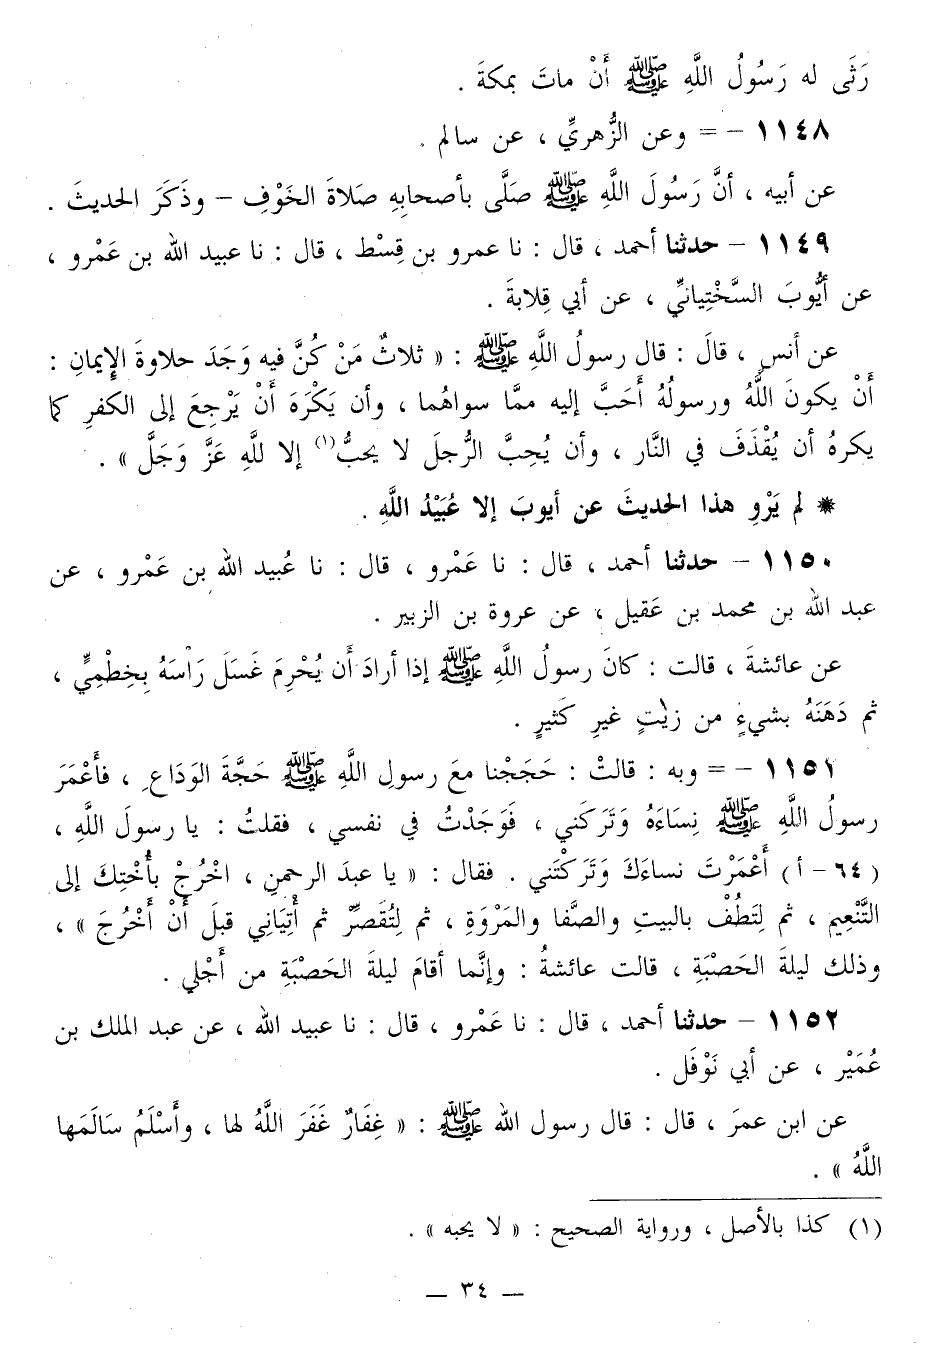 رَثَى له رَسُولُ اللَّهِ ﷺ أَنْ ماتَ بمكةَ .
١١٤٨ – = وعن الزُّهريِّ ، عن سالم .
عن أبيه ، أنَّ رَسُولَ اللَّهِ ﷺ صَلَّى بأصحابِهِ صَلاةَ الخَوْفِ – وذَكَرَ الحديثَ .
١١٤٩ – حدثنا أحمد ، قال : نا عمرو بن قِسْط ، قال : نا عبيد الله بن عَمْرو ،
عن أيُّوبَ السَّخْتِيانيِّ ، عن أبي قِلابةَ .
عن أنس ، قالَ : قال رسولُ اللَّهِ ﷺ : « ثلاثٌ مَنْ كُنَّ فيه وَجَدَ حلاوةَ الإِيمانِ :
أَنْ يكونَ اللَّهُ ورسولُهُ أَحَبَّ إليه ممَّا سواهُما ، وأن يَكْرَهَ أَنْ يَرْجِعَ إلى الكفرِ كما
يكرهُ أن يُقْذَفَ في النَّار ، وأن يُحِبَّ الرَّجلَ لا يحبُّ(١) إلا للَّهِ عَزَّ وَجَلَّ » .
* لم يَرْوِ هذا الحديثَ عن أيوبَ إلا عُبَيْدُ اللَّهِ .
١١٥٠ – حدثنا أحمد ، قال : نا عَمْرو ، قال : نا عُبيد الله بن عَمْرو ، عن
عبد الله بن محمد بن عَقيل ، عن عروة بن الزبير .
عن عائشةَ ، قالت : كانَ رسولُ اللَّهِ ﷺ إذا أرادَ أَن يُحْرِمَ غَسَلَ رَأسَهُ بِخِطْمِيٍّ ،
ثم دَهَنَهُ بشيءٍ من زيْتٍ غيرِ كَثيرٍ .
١١٥١ – = وبه : قالتْ : حَجَجْنا معَ رسولِ اللَّهِ ﷺ حَجَّةَ الوَدَاعِ ، فأَعْمَرَ
رسولُ اللَّهِ ﷺ نِسَاءَهُ وَتَرَكَني ، فَوَجَدْتُ في نفسي ، فقلتُ : يا رسولَ اللَّهِ ،
(٦٤ – أ) أَعْمَرْتَ نساءَكَ وَتَرَكْتَني . فقال : « يا عبدَ الرحمنِ ، اخْرُجْ بأُخْتِكَ إلى
التَّنْعِيم ، ثم لِتَطُفْ بالبيتِ والصَّفا والمَرْوَةِ ، ثم لِتُقَصِّرْ ثم أْتِيَاني قبلَ أَنْ أَخْرُجَ » ،
وذلك ليلةَ الحَصْبَةِ ، قالت عائشةُ : وإنَّما أقامَ ليلةَ الحَصْبَةِ من أَجْلي .
١١٥٢ – حدثنا أحمد ، قال : نا عَمْرو ، قال : نا عبيد الله ، عن عبد الملك بن
عُمَيْر ، عن أبي نَوْفَل .
عن ابن عمرَ ، قال : قال رسول الله ﷺ : « غِفَارٌ غَفَرَ اللَّهُ لها ، وأَسْلَمُ سَالَمَها
اللَّهُ » .
(١) كذا بالأصل ، ورواية الصحيح : « لا يحبه » .
— ٣٤ —